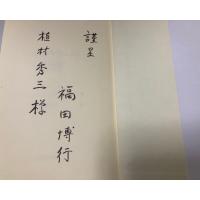 謹呈
福田博行
植村秀三様